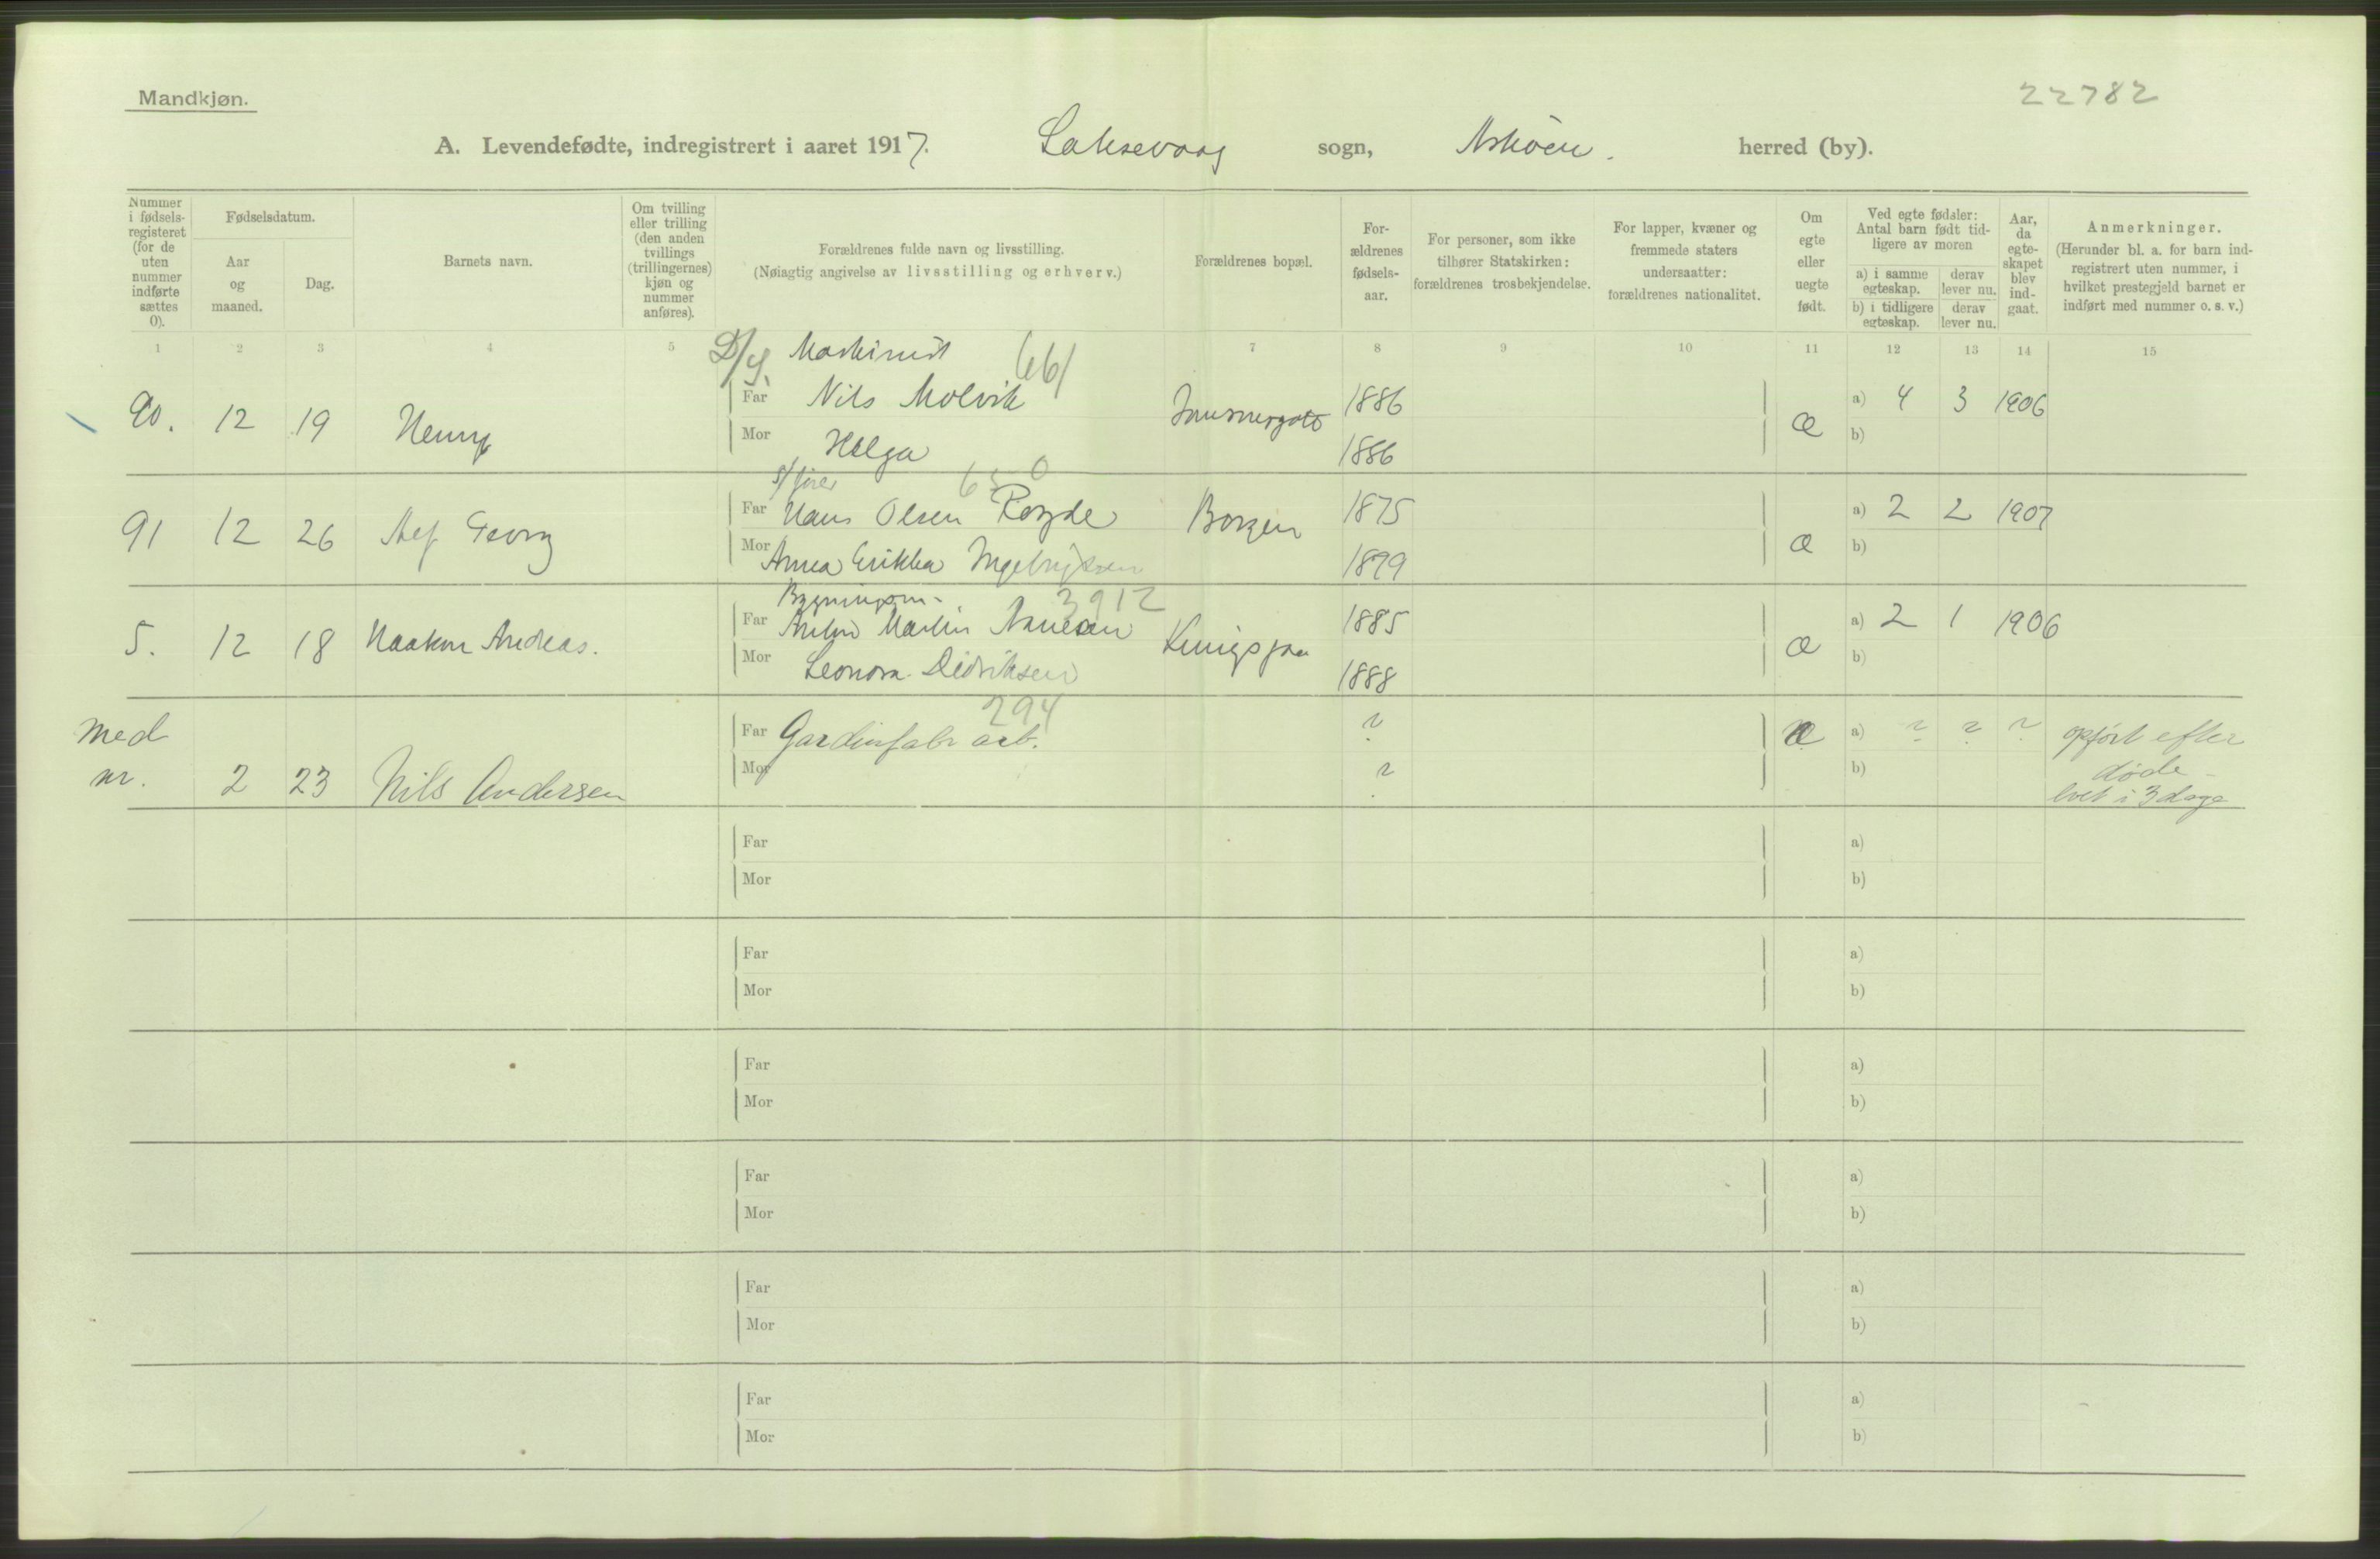 Mandkjøn.
22782
A. Levendefødte, indregistrert i aaret 1917. Laksevaag sogn, Askøen. herred (by).
Nummer i fødsels-registeret (for de uten nummer indførte sættes 0).
Fødselsdatum.
Aar og maaned.
Dag.
Barnets navn.
Om tvilling eller trilling (den anden tvillings (trillingernes) kjøn og nummer anføres).
Forældrenes fulde navn og livsstilling.
(Nøiagtig angivelse av livsstilling og erhverv.)
Forældrenes bopæl.
For-ældrenes fødsels-aar.
For personer, som ikke tilhører Statskirken: forældrenes trosbekjendelse.
For lapper, kvæner og fremmede staters undersaatter: forældrenes nationalitet.
Om egte eller uegte født.
Ved egte fødsler: Antal barn født tid-ligere av moren
a) i samme egteskap.
derav lever nu.
b) i tidligere egteskap.
derav lever nu.
Aar, da egte-skapet blev ind-gaat.
Anmerkninger.
(Herunder bl. a. for barn ind-registrert uten nummer, i hvilket prestegjeld barnet er indført med nummer o. s. v.)
1 2 3 4 5 7 8 9 10 11 12 13 14 15
D/y. Maskinist 661
Far Nils Molvik 1886 a) 4 3 1906
90. 12 19 Henry æ
Mor Helga 1886 b)
s/fører 650
Far Hans Olsen Røyde 1875 a) 2 2 1907
91 12 26 Georg æ
Mor Anna Erikka Ingebrigtsen 1899 b)
Bygningsm. 3912
Far Martin Hansen 1885 a) 2 1 1906
5. 12 18 Haakon Andreas. æ
Mor Leonora Didriksen 1888 b)
294
Far Gardinfabr arb. ? æ a) ? ? ? opført efter
Med
nr. 2 23 Nils Andersen
Mor ? b) døde -
levet i 3 dage
Far a)
Mor b)
Far a)
Mor b)
Far a)
Mor b)
Far a)
Mor b)
Far a)
Mor b)
Far a)
Mor b)